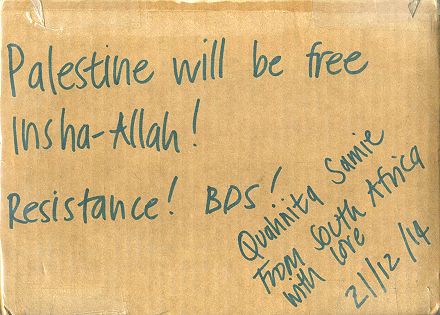 Palestine will be free
Insha-Allah!
Resistance! BDS!
Quahnita Samie
From South Africa
with love
21/12/14